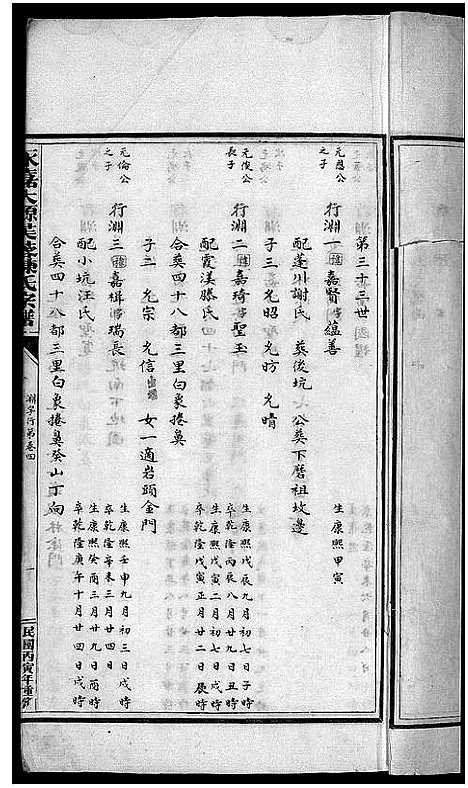 第三十三世
元恩公
之子
行淵一 諱嘉賢字蘊善
生康熙甲寅
配蓬川謝氏 葬後坑 公葬下磨祖坟邊
子三 允昭 允昉 允晴
元俊公
長子
行淵二 諱嘉琦字聖玉
生康熙戊辰九月初七日子時
卒乾隆丙辰八月廿九日丑時
配霞渼滕氏
生康熙戊寅二月初七日戌時
卒乾隆戊寅正月廿二日辰時
合葬四十八都三里白象捲鼻
子二 允宗 允信出繼 女一適岩頭金門
元倫公
之子
行淵三 諱嘉楫字瑞長
生康熙壬申九月初三日戌時
卒乾隆辛未三月廿四日
配小坑汪氏
生康熙癸酉三月廿九日酉時
卒乾隆庚午十月廿四日戌時
合葬四十八都三里白象捲鼻癸山丁向
淵字行第卷四
一
民國丙寅年重修